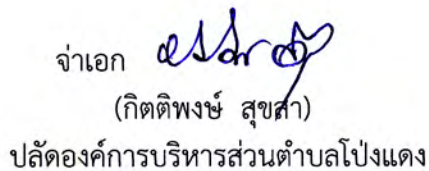 จ่าเอก
(กิตติพงษ์ สุขสำ)
ปลัดองค์การบริหารส่วนตำบลโป่งแดง